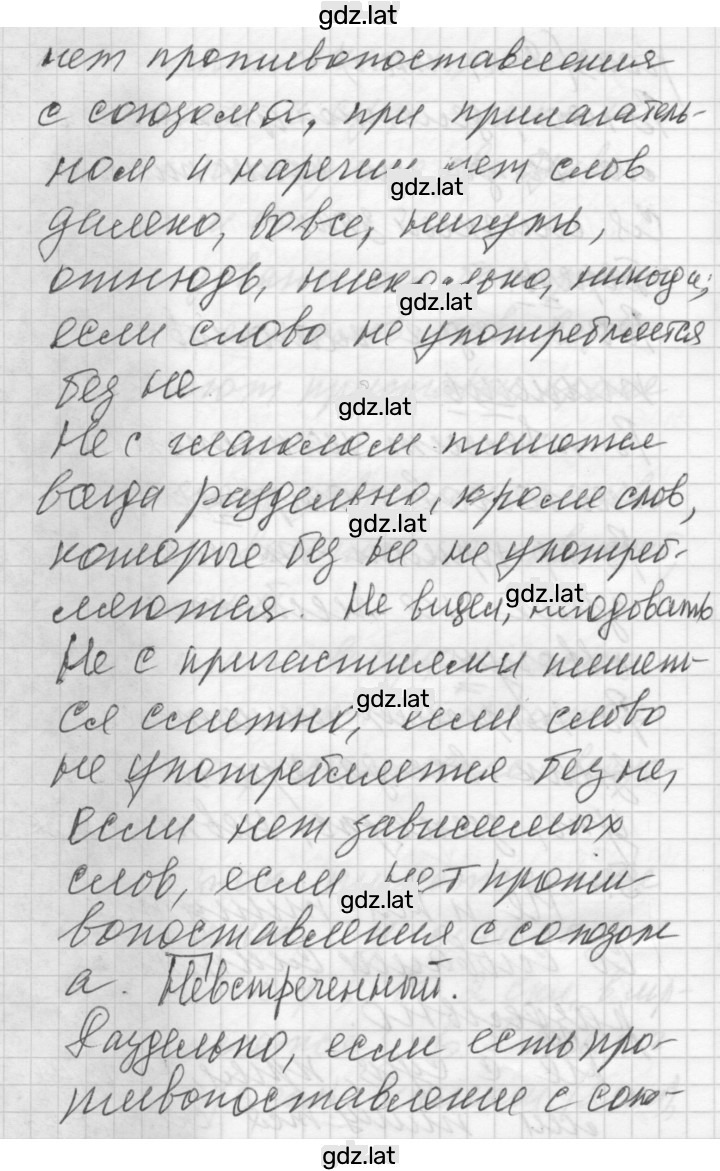 gdz.lat
нет противопоставления
с союзом а, при прилагатель-
ном и наречии нет слов
gdz.lat
далеко, вовсе, ничуть,
отнюдь, нисколько, никогда;
gdz.lat
если слово не употребляется
без не.
gdz.lat
Не с глаголом пишется
всегда раздельно, кроме слов,
gdz.lat
которые без не не употреб-
ляются. Не видел, негодовать
gdz.lat
Не с причастиями пишет-
ся слитно, если слово
gdz.lat
не употребляется без не,
если нет зависимых
слов, если нет проти
gdz.lat
вопоставления с союзом
а. Невстреченный.
Раздельно, если есть про-
тивопоставление с сою-
gdz.lat